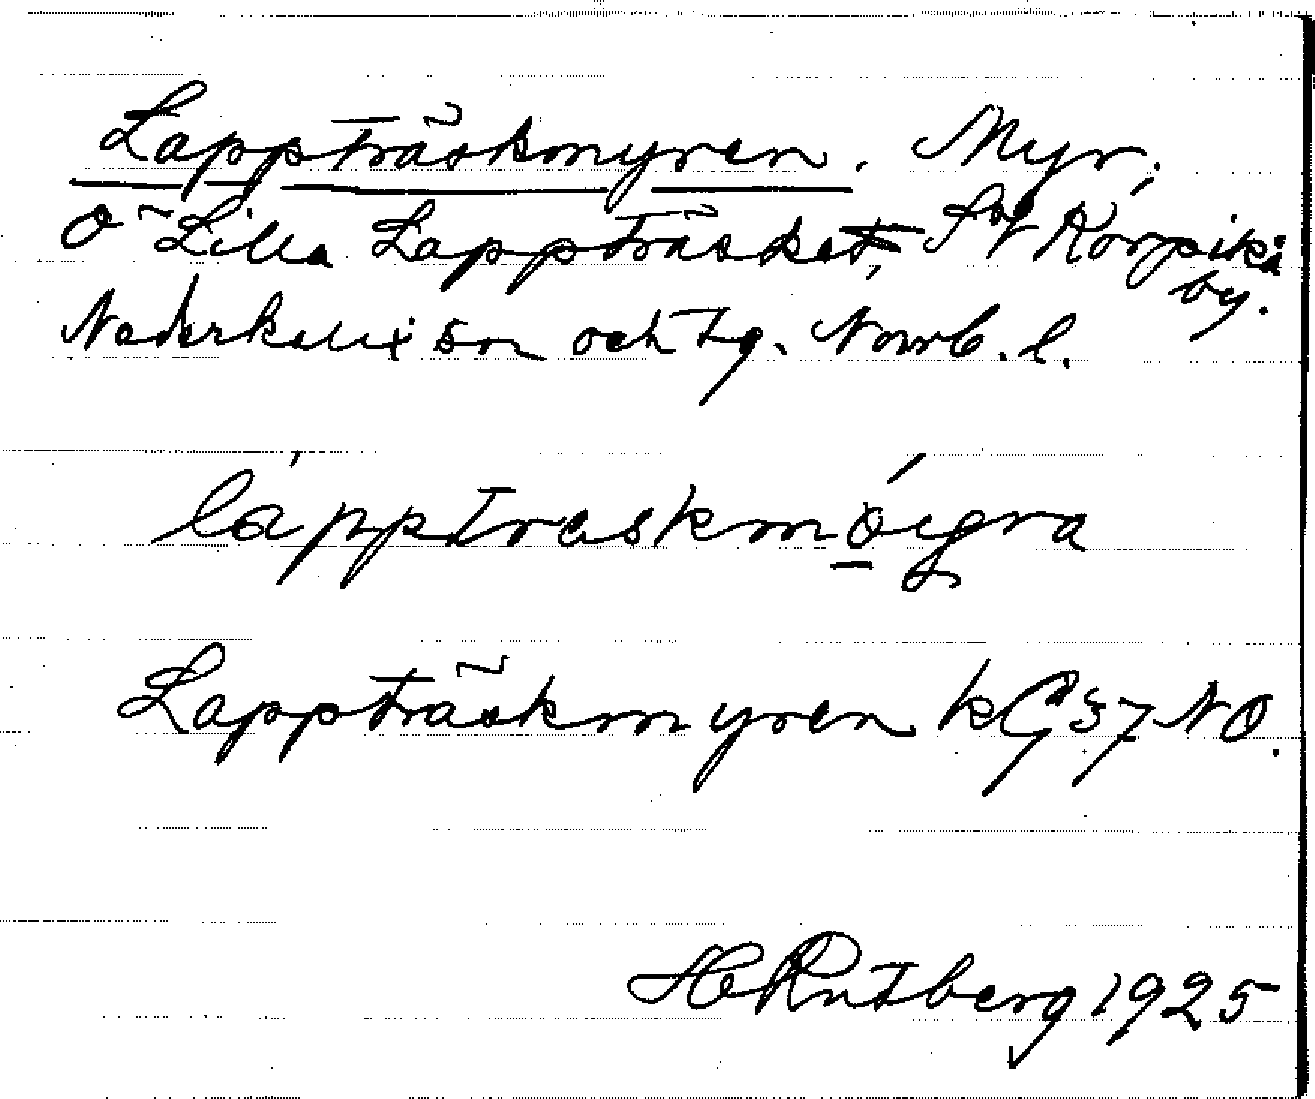 Lappträskmyren. Myr,
O~ Lilla Lappträsket, SV Korpikå
by.
Nederkalix sn och tg. Norrb. l.
láppträskmóigra
Lappträskmyren kG 57 NO.
H Rutberg 1925